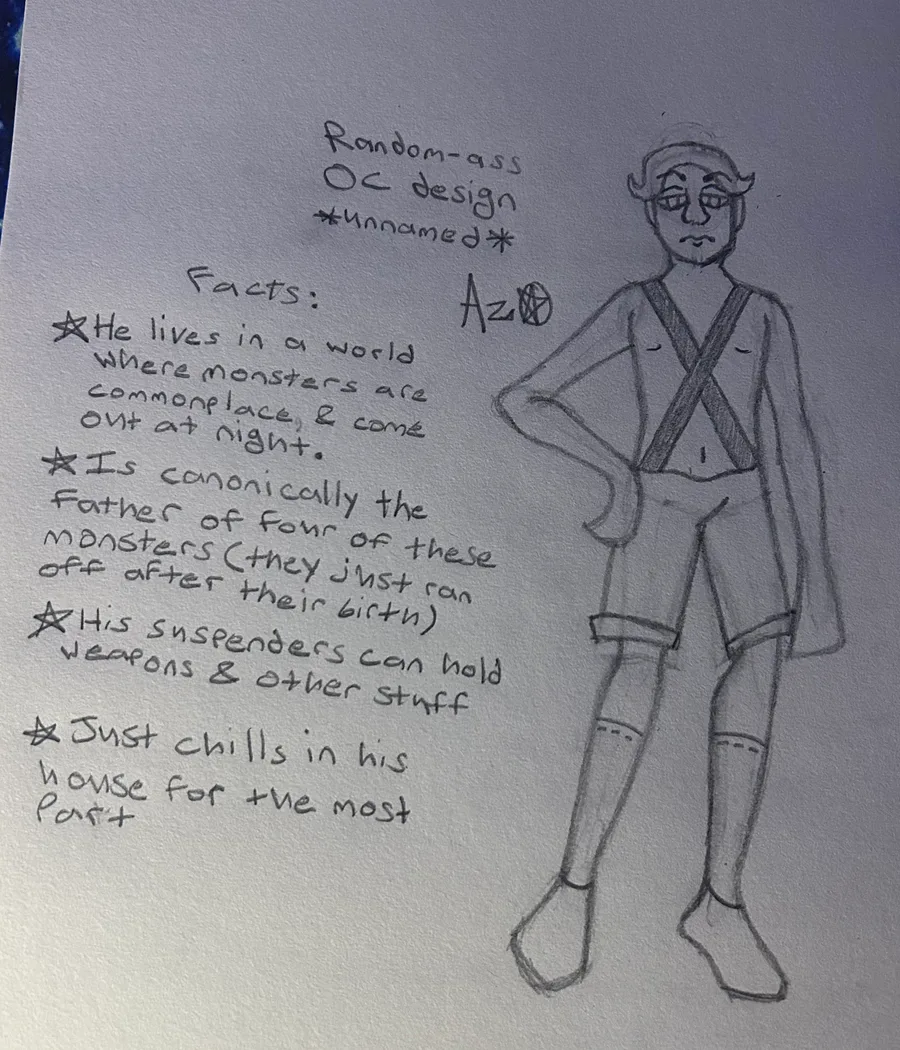 Random-ass
OC design
*unnamed*
Az
Facts:
☆He lives in a world
where monsters are
commonplace, & come
out at night.
☆Is canonically the
Father of four of these
monsters (they just ran
off after their birth)
☆His suspenders can hold
weapons & other stuff
☆Just chills in his
house for the most
Part